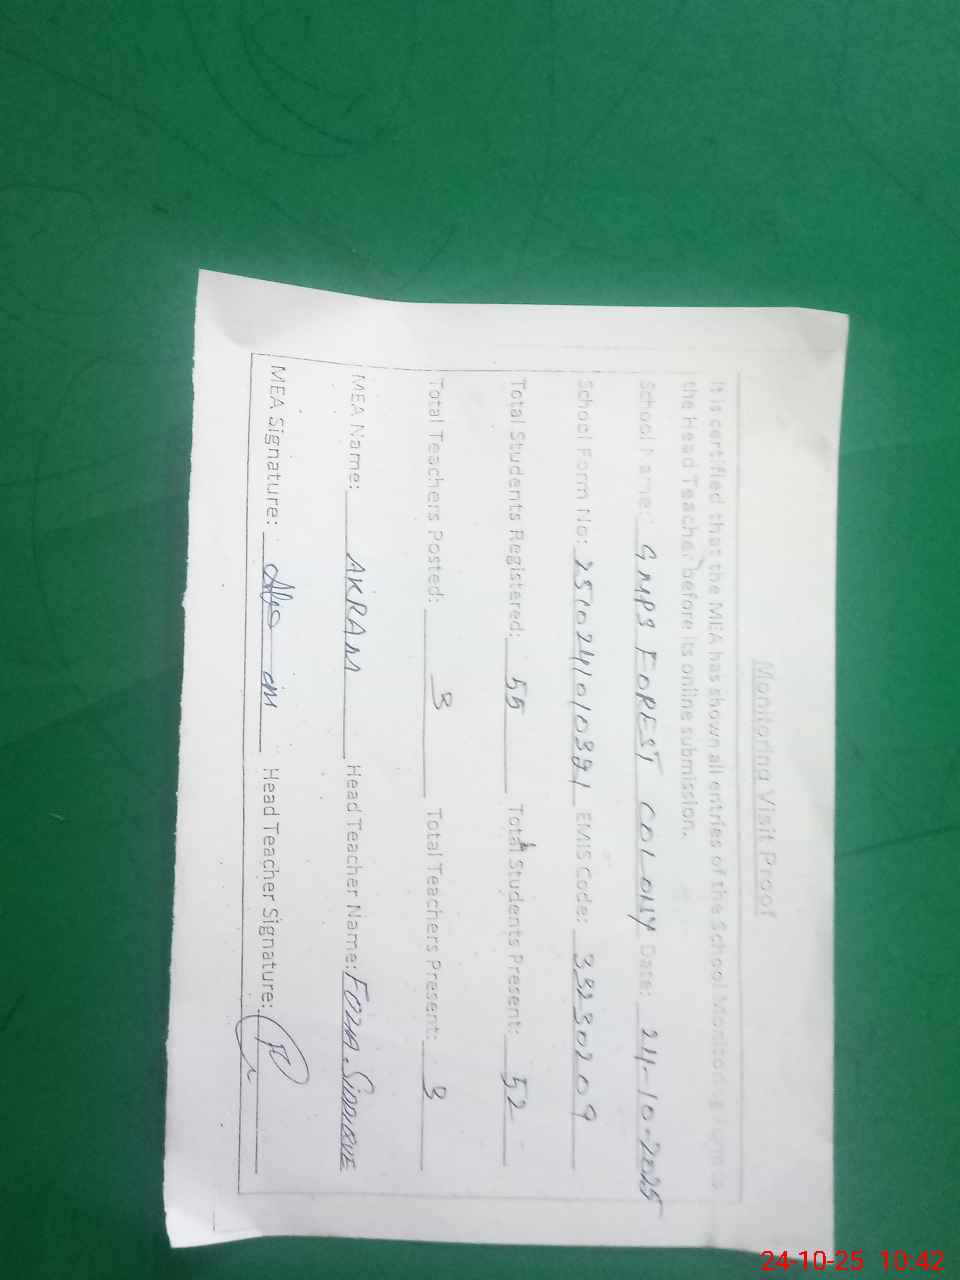 Monitoring Visit Proof
It is certified that the MEA has shown all entries of the School Monitoring Form to
the Head Teacher before its online submission.
School Name: GMPS FOREST COLONY Date: 24-10-2025
School Form No: EMIS Code: 33230209
Total Students Registered: 55 Total Students Present: 52
Total Teachers Posted: 3 Total Teachers Present: 3
MEA Name: AKRAM Head Teacher Name: FOZIA SIDDIQUE
MEA Signature: Head Teacher Signature:
24-10-25 10:42